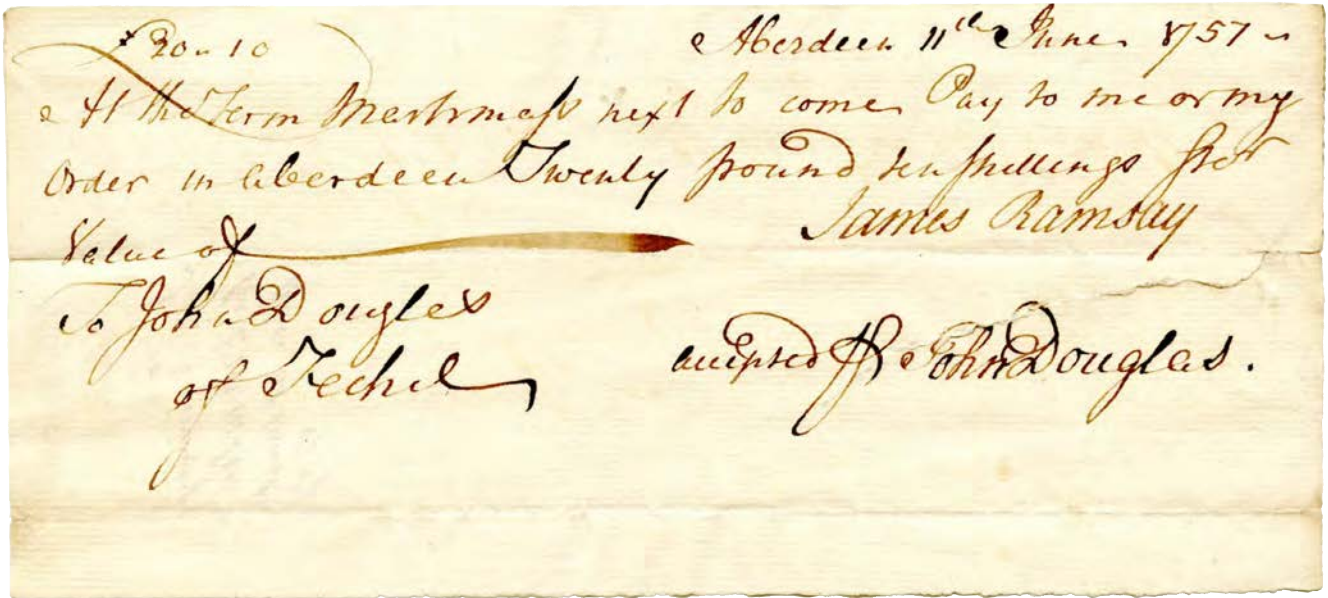 £ 20 " 10
Aberdeen 11th June 1757
At the Term Martimass next to come Pay to me or my
Order in Aberdeen Twenty pound ten shillings ster
Value of
James Ramsay
To John Douglas
of Fechel
accepted John Douglas.